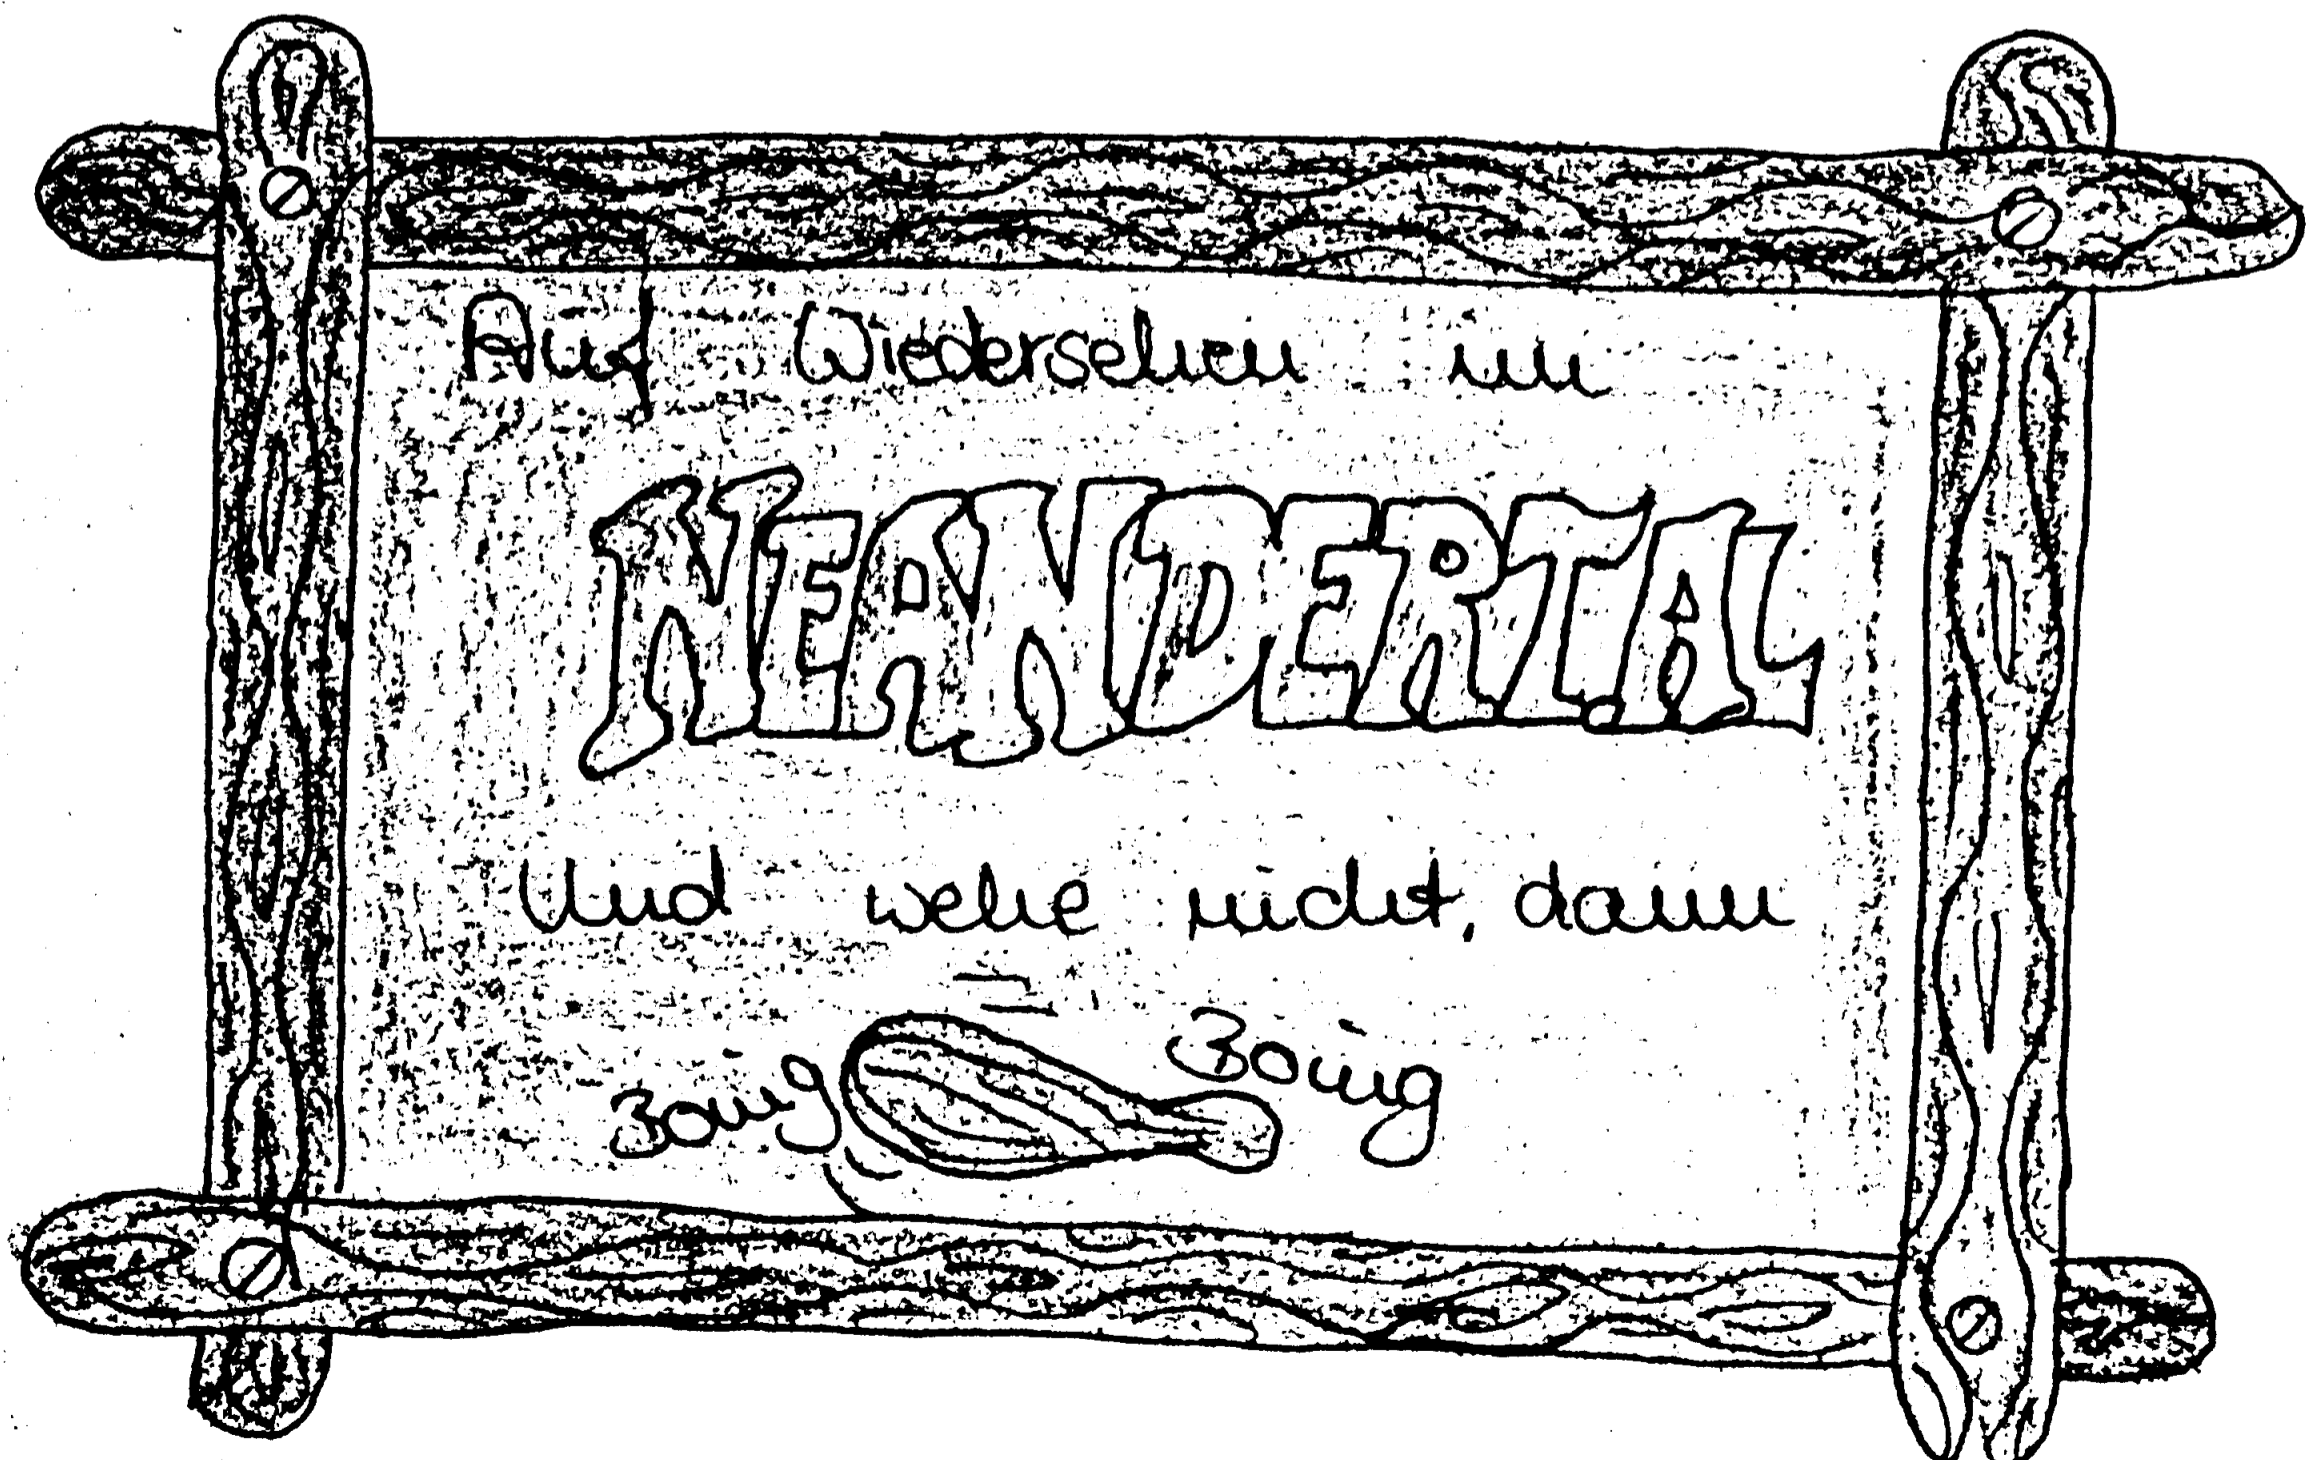 Auf Wiedersehen im
NEANDERTAL
Und wehe nicht, dann
Boing
Boing